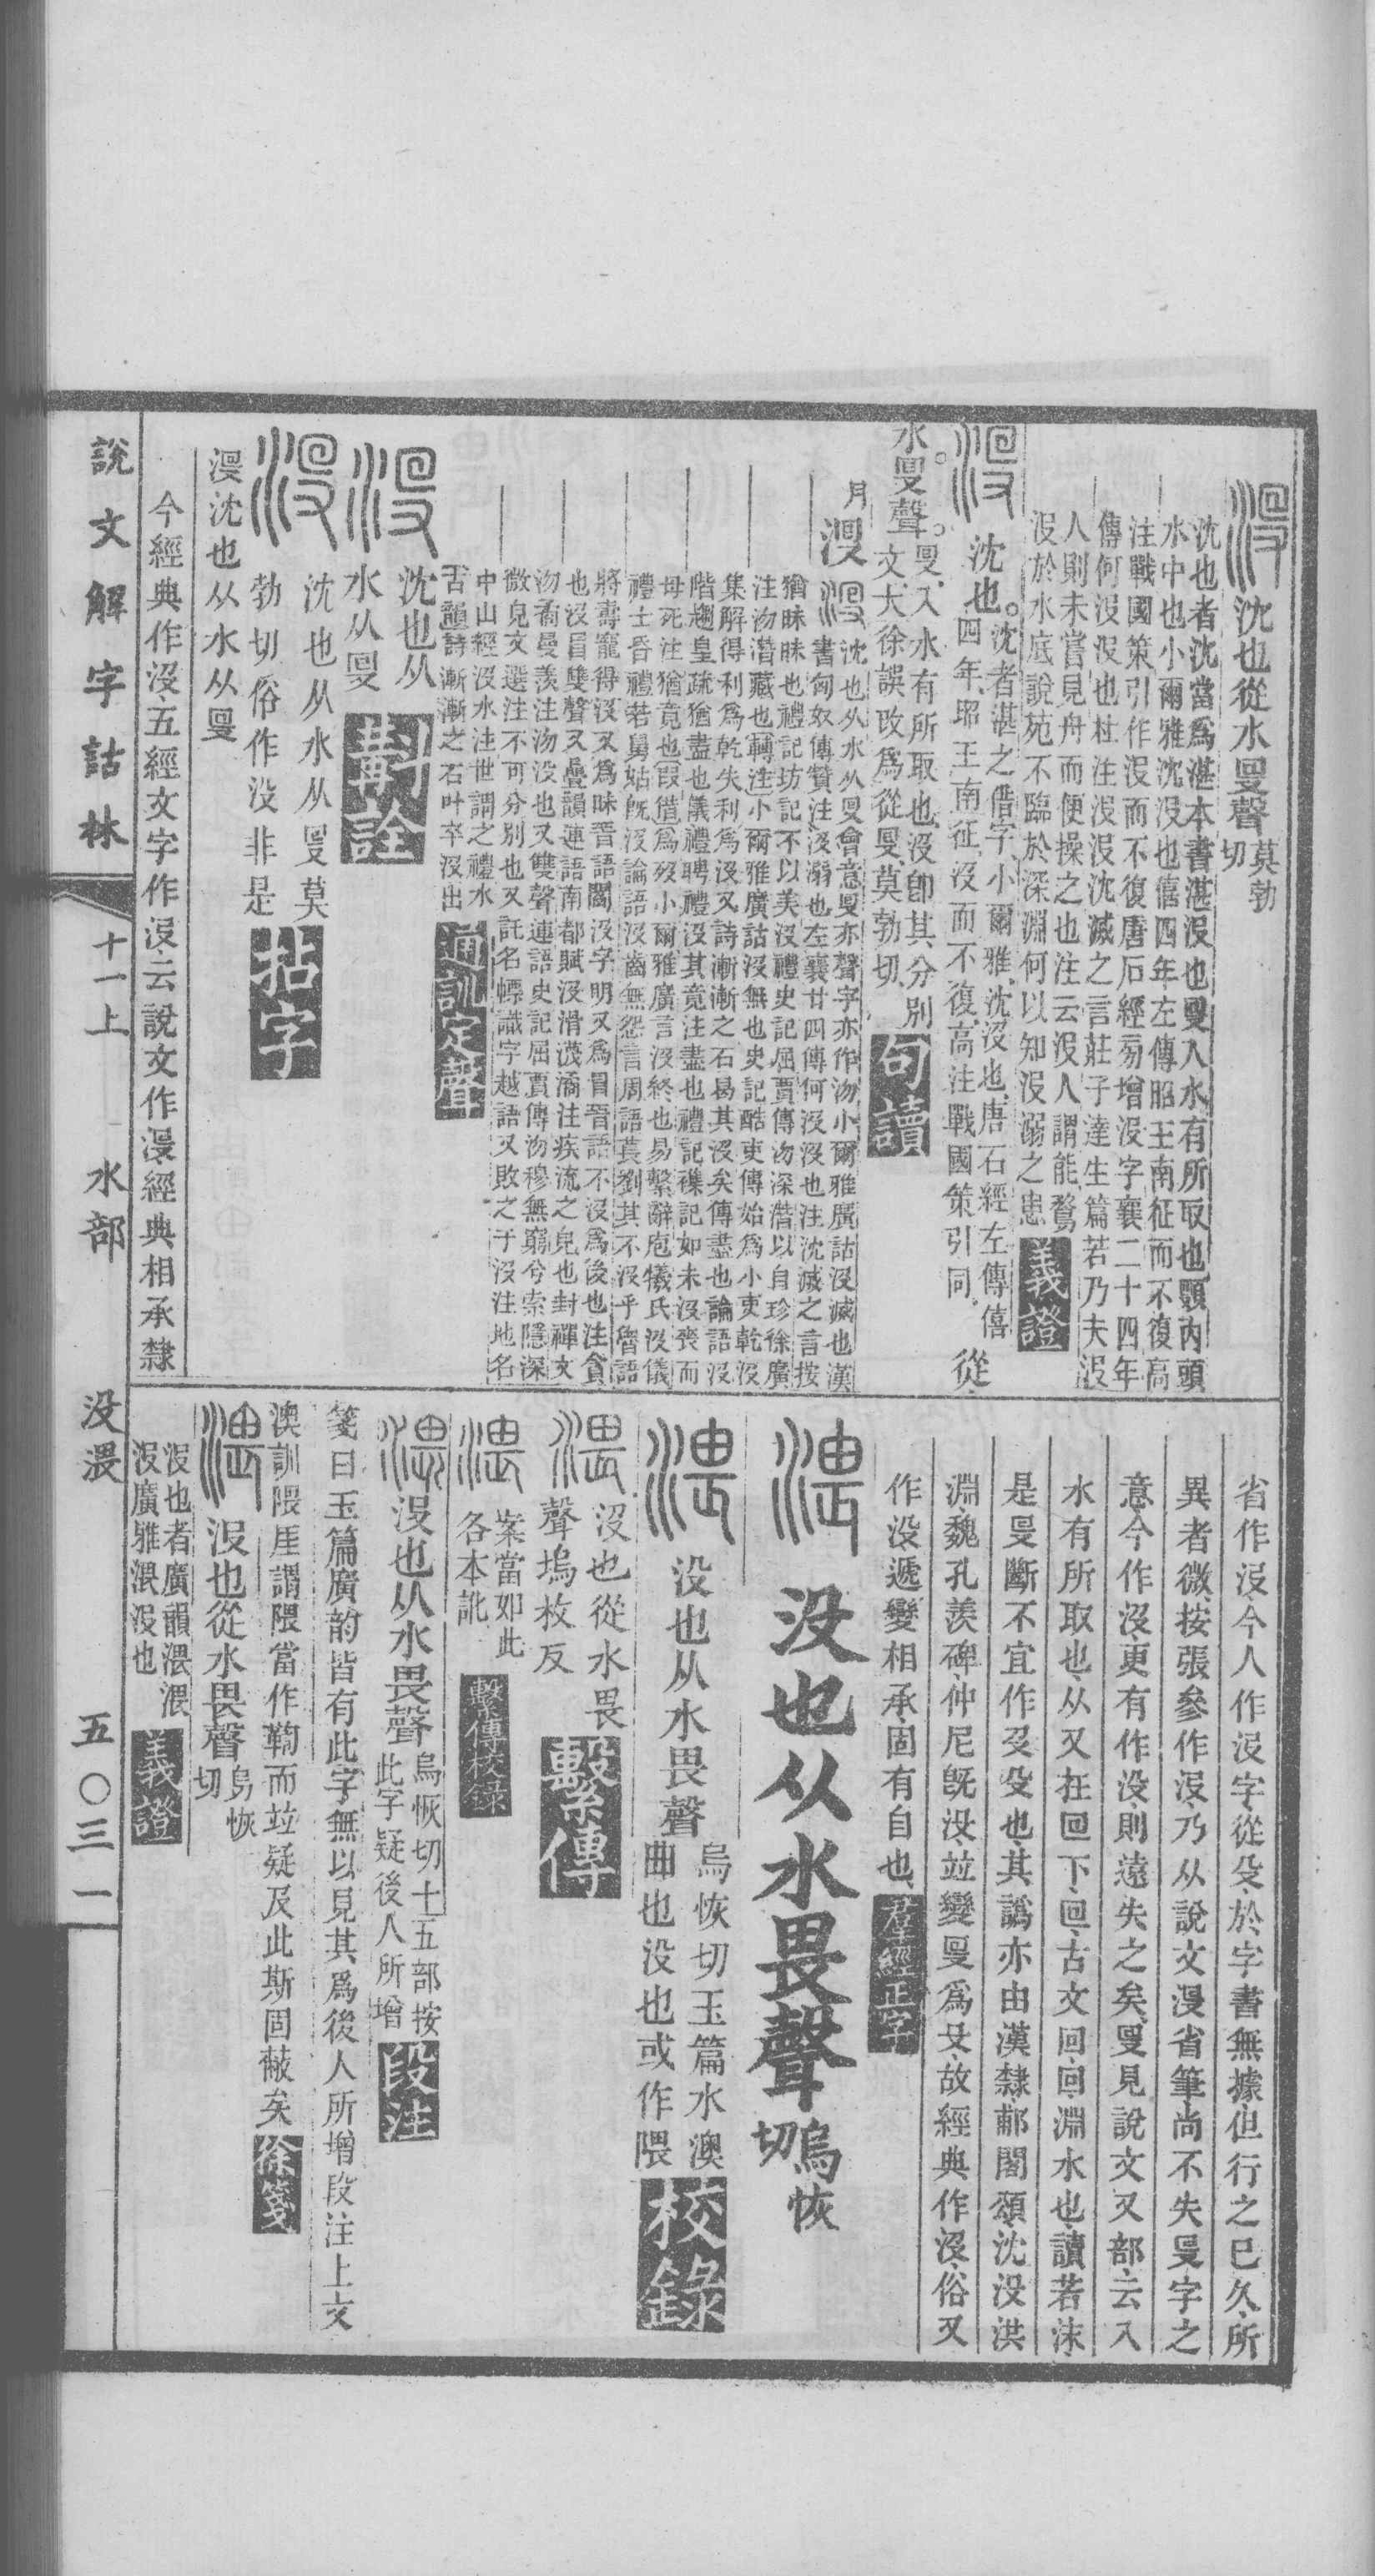 沈也從水𠬛聲莫勃切
沈也者沈當爲湛本書湛沒也𠬛入水有所取也頞內頭
水中也小爾雅沈沒也僖四年左傳昭王南征而不復高
注戰國策引作沒而不復唐石經旁增沒字襄二十四年
傳何沒沒也杜注沒沒沈滅之言莊子達生篇若乃夫沒
人則未嘗見舟而便操之也注云沒人謂能鶩
沒於水底說苑不臨於深淵何以知沒溺之患義證
沈也。沈者湛之借字小爾雅沈沒也唐石經左傳僖
四年昭王南征沒而不復高注戰國策引同。從
水𠬛聲。𠬛入水有所取也沒卽其分別
文大徐誤改爲從𠬛莫勃切句讀
月沒沈也从水从𠬛會意𠬛亦聲字亦作沕小爾雅廣詁沒滅也漢
書匈奴傳贊注沒溺也左襄廿四傳何沒沒也注沈滅之言按
猶昧昧也禮記坊記不以美沒禮史記屈賈傳沕深潛以自珍徐廣
注沕潛藏也轉注小爾雅廣詁沒無也史記酷吏傳始爲小吏乾沒
集解得利爲乾失利爲沒又詩漸漸之石曷其沒矣傳盡也論語沒
階趨皇疏猶盡也儀禮聘禮沒其竟注盡也禮記襍記如未沒喪而
母死注猶竟也叚借爲歿小爾雅廣言沒終也易繫辭庖犧氏沒儀
禮士昏禮若舅姑旣沒論語沒齒無怨言周語萇劉其不沒乎晉語
將壽寵得沒又爲昧晉語閽沒字明又爲冒晉語不沒爲後也注貪
也沒冒雙聲又疊韻連語南都賦沒滑瀎潏注疾流之皃也封禪文
沕潏曼羨注沕沒也又雙聲連語史記屈賈傳沕穆無窮兮索隱深
微皃文選注不可分別也又託名幖識字越語又敗之于沒注地名
中山經沒水注世謂之禮水
古韻詩漸漸之石叶卒沒出通訓定聲
沈也从
水从𠬛斠詮
沈也从水从𠬛莫
勃切俗作没非是拈字
沒沈也从水从𠬛
今經典作沒五經文字作沒云說文作沒經典相承隸
省作沒今人作沒字從殳於字書無據但行之已久所
異者微按張參作沒乃从說文沒省筆尚不失𠬛字之
意今作沒更有作没則遠失之矣𠬛見說文又部云入
水有所取也从又在囘下囘古文回回淵水也讀若沫
是𠬛斷不宜作殳殳也其譌亦由漢隸郙閣頌沈没洪
淵魏孔羨碑仲尼旣没竝變𠬛爲殳故經典作沒俗又
作没遞變相承固有自也羣經正字
没也从水畏聲烏恢切
没也从水畏聲烏恢切玉篇水澳
曲也没也或作隈校錄
沒也從水畏
聲塢枚反繫傳
案當如此
各本訛繫傳校錄
没也从水畏聲烏恢切十五部按
此字疑後人所增段注
箋曰玉篇廣韵皆有此字無以見其爲後人所增段注上文
澳訓隈厓謂隈當作鞫而竝疑及此斯固蔽矣徐箋
沒也從水畏聲烏恢切
沒也者廣韻渨渨
沒廣雅渨沒也義證
說文解字詁林
十一上
水部
没渨
五〇三一